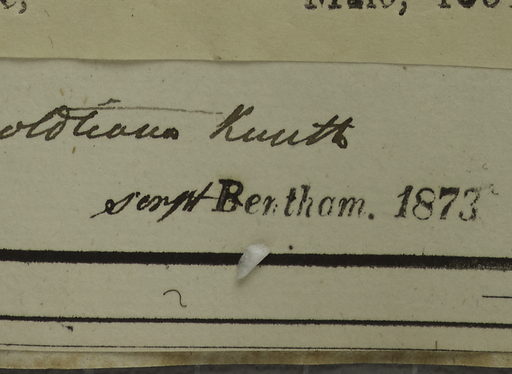 oldtiana Kunth
scrpt Bentham. 1873